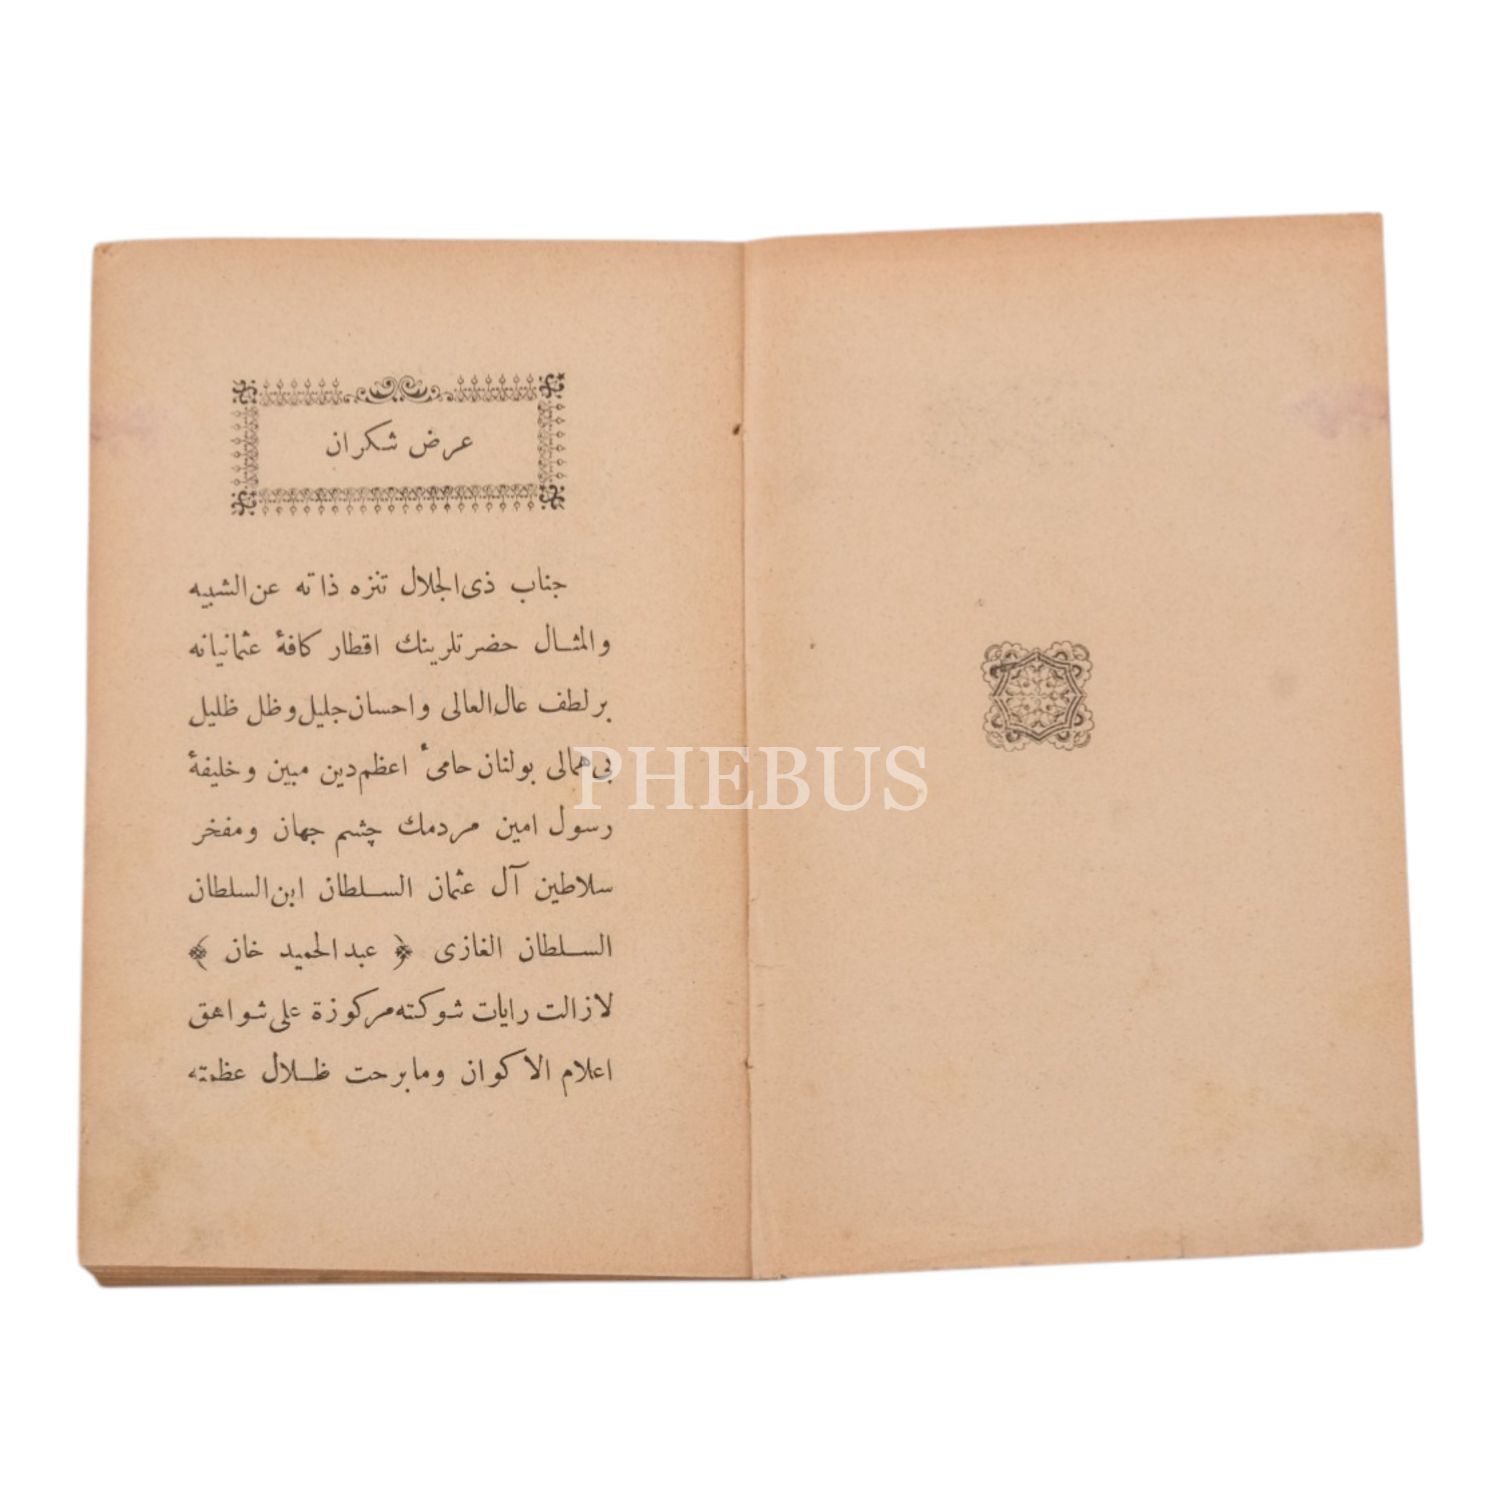 عرض شكران
جناب ذى‌الجلال تنزه ذاته عن‌الشبيه
والمثال حضرتلرينك اقطار كافۀ عثمانيانه
بر لطف عال‌العالى واحسان جليل وظل ظليل
بى‌همالى بولنان حامىٔ اعظم دين مبين وخليفۀ
رسول امين مردمك چشم جهان ومفخر
سلاطين آل عثمان السلطان ابن‌السلطان
السلطان الغازى ﴿ عبدالحميد خان ﴾
لازالت رايات شوكته مركوزة على شواهق
اعلام الاكوان ومابرحت ظلال عظمته
PHEBUS